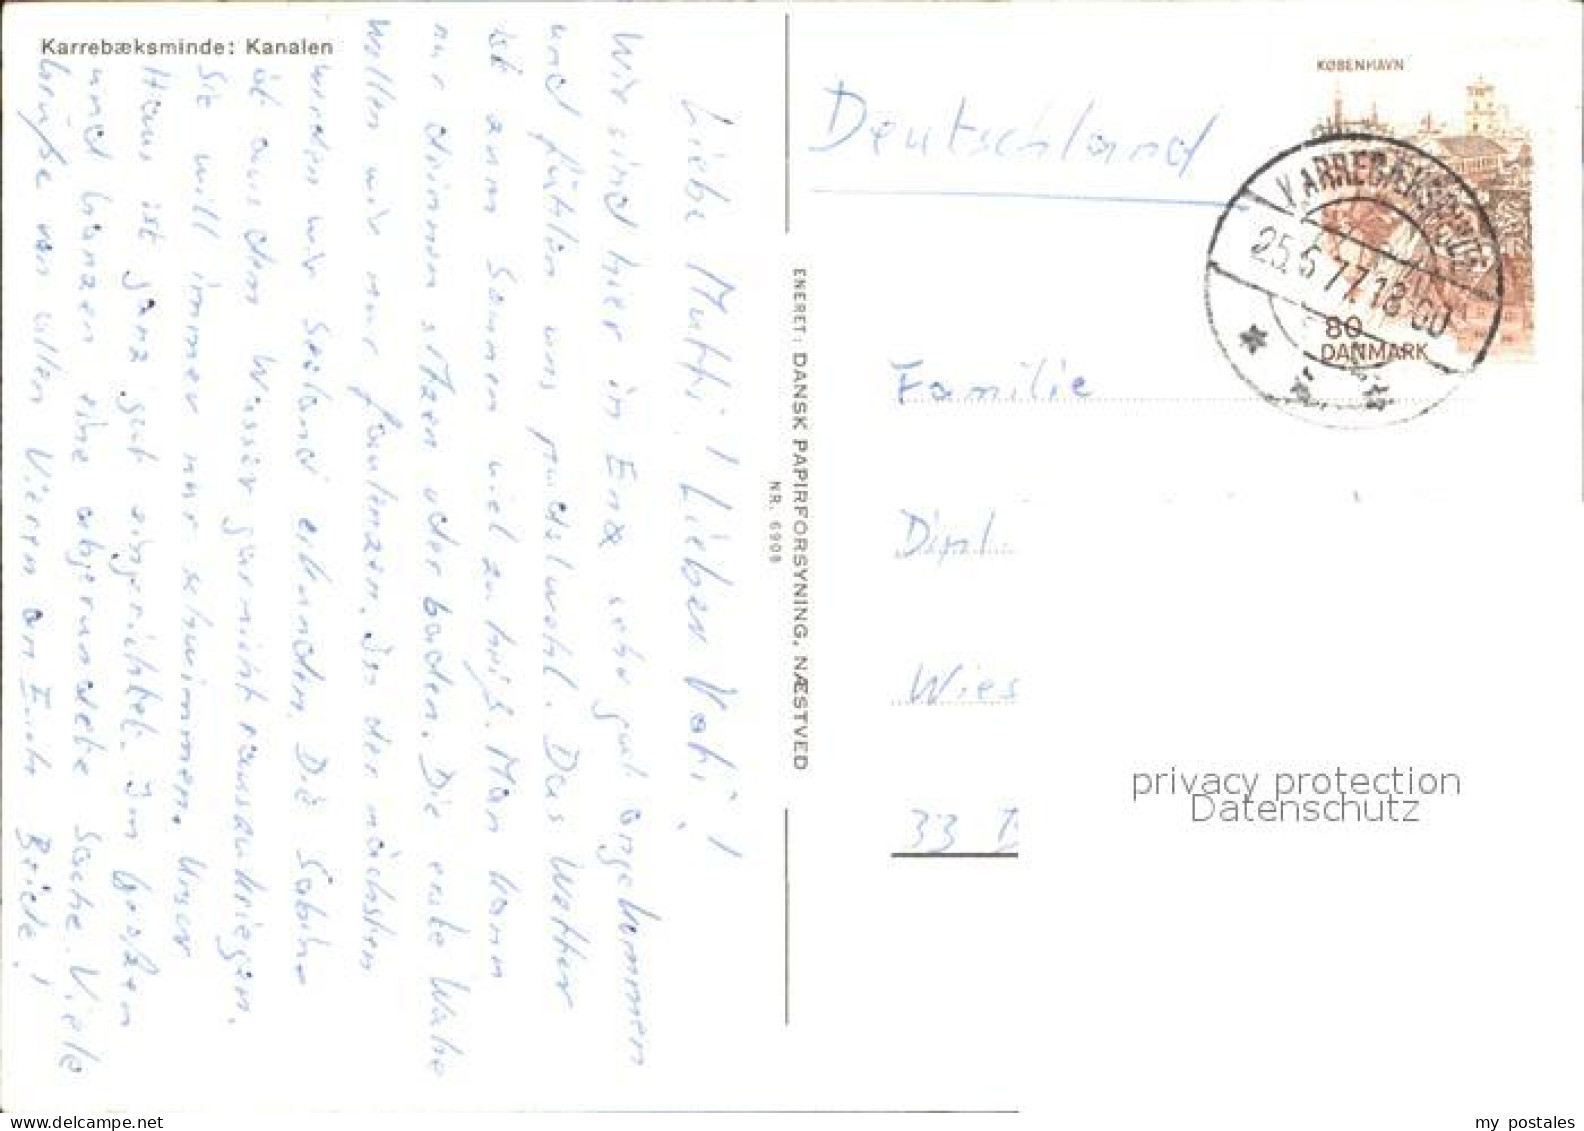 Karrebæksminde: Kanalen
Liebe Mutti! Lieber Vati!
Wir sind hier in Enø sehr gut angekommen
und fühlen uns pudelwohl. Das Wetter
ist zum Sonnen viel zu heiß. Man kann
nur drinnen sitzen oder baden. Die erste Woche
wollen wir nur faulenzen. In der nächsten
werden wir Seeland erkunden. Die Sabine
ist aus dem Wasser gar nicht rauszukriegen.
Sie will immer nur schwimmen. Unser
Haus ist ganz gut eingerichtet. Im großen
und ganzen eine abgerundete Sache. Viele
Grüße von allen Vieren an Euch Beide!
ENERET: DANSK PAPIRFORSYNING, NÆSTVED
NR. 6908
Deutschland
KØBENHAVN
KARREBÆKSMINDE
25.6.77.18-00
80
DANMARK
Familie
Dipl
Wies
33
privacy protection
Datenschutz
my postales